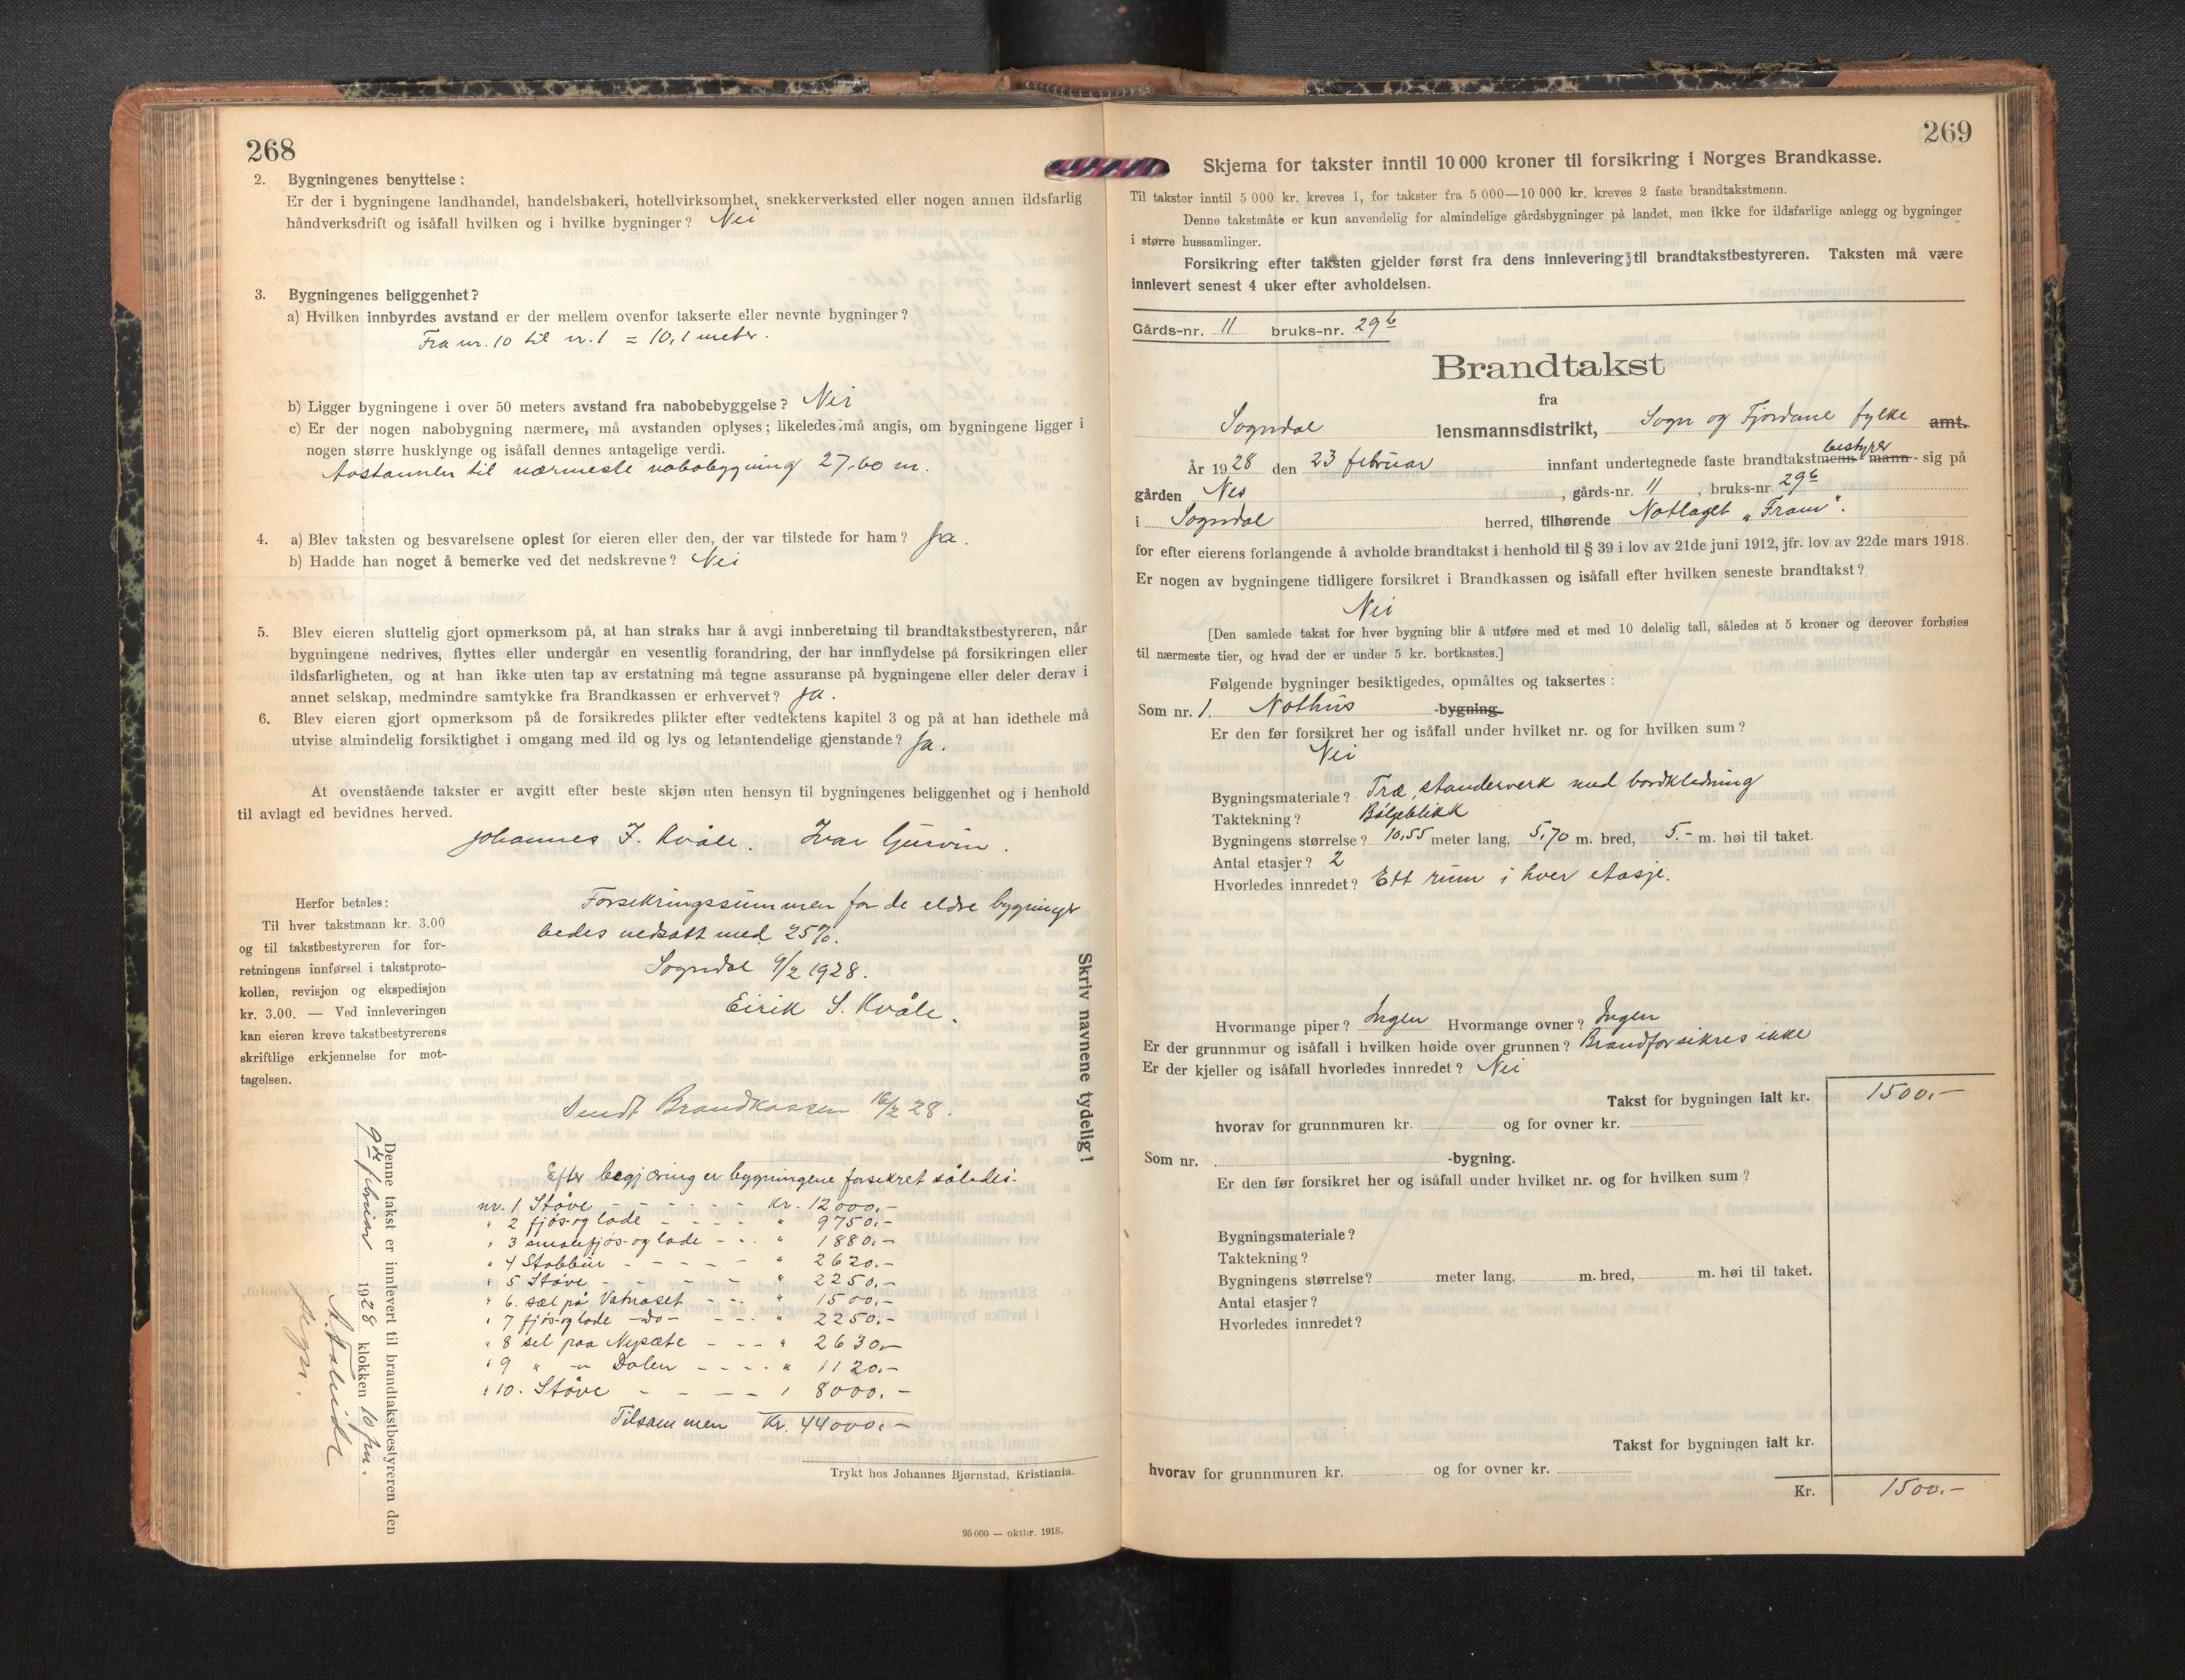 268
2. Bygningenes benyttelse:
Er der i bygningene landhandel, handelsbakeri, hotellvirksomhet, snekkerverksted eller nogen annen ildsfarlig
håndverksdrift og isåfall hvilken og i hvilke bygninger? Nei
3. Bygningenes beliggenhet?
a) Hvilken innbyrdes avstand er der mellem ovenfor takserte eller nevnte bygninger?
Fra nr. 10 til nr. 1 = 10,1 meter.
b) Ligger bygningene i over 50 meters avstand fra nabobebyggelse? Nei
c) Er der nogen nabobygning nærmere, må avstanden oplyses; likeledes må angis, om bygningene ligger i
nogen større husklynge og isåfall dennes antagelige verdi.
Avstannen til nærmeste nabobyggning 27,60 m.
4. a) Blev taksten og besvarelsene oplest for eieren eller den, der var tilstede for ham? Ja.
b) Hadde han noget å bemerke ved det nedskrevne? Nei
5. Blev eieren sluttelig gjort opmerksom på, at han straks har å avgi innberetning til brandtakstbestyreren, når
bygningene nedrives, flyttes eller undergår en vesentlig forandring, der har innflydelse på forsikringen eller
ildsfarligheten, og at han ikke uten tap av erstatning må tegne assuranse på bygningene eller deler derav i
annet selskap, medmindre samtykke fra Brandkassen er erhvervet? Ja.
6. Blev eieren gjort opmerksom på de forsikredes plikter efter vedtektens kapitel 3 og på at han idethele må
utvise almindelig forsiktighet i omgang med ild og lys og letantendelige gjenstande? Ja.
At ovenstående takster er avgitt efter beste skjøn uten hensyn til bygningenes beliggenhet og i henhold
til avlagt ed bevidnes herved.
Johannes J. Kvåle. Ivar Gurvin.
Herfor betales:
Til hver takstmann kr. 3.00
og til takstbestyreren for for-
retningens innførsel i takstproto-
kollen, revisjon og ekspedisjon
kr. 3.00. — Ved innleveringen
kan eieren kreve takstbestyrerens
skriftlige erkjennelse for mot-
tagelsen.
Forsekringssummen for de eldre bygninger
bedes nedsatt med 25%.
Sogndal 9/2 1928.
Eirik S. Kvåle.
Sendt Brandkassen 16/2 28.
Skriv navnene tydelig!
Efter begjæring er bygningene forsekret således:
nr. 1 Ståve - - - - - Kr. 12000.-
" 2 fjøs-og lade - - - - " 9750.-
" 3 smalefjøs-og lade - - - " 1880.-
" 4 Stabbur - - - - - " 2620.-
" 5 Ståve - - - - - " 2250.-
" 6. sæl på Vatnaset - - - " 1500.-
" 7 fjøs-og lade -do- - - - " 2250.-
" 8 sel paa Nysæte - - - " 2630.-
" 9 " -"- Dalen - - - - " 1120.-
" 10. Ståve - - - - " 8000.-
Tilsammen Kr. 44000.-
Denne takst er innlevert til brandtakstbestyreren den
9de februar 1928 klokken 10 fm.
Trykt hos Johannes Bjørnstad, Kristiania.
95 000 — oktbr. 1918.
269
Skjema for takster inntil 10 000 kroner til forsikring i Norges Brandkasse.
Til takster inntil 5 000 kr. kreves 1, for takster fra 5 000—10 000 kr. kreves 2 faste brandtakstmenn.
Denne takstmåte er kun anvendelig for almindelige gårdsbygninger på landet, men ikke for ildsfarlige anlegg og bygninger
i større hussamlinger.
Forsikring efter taksten gjelder først fra dens innlevering til brandtakstbestyreren. Taksten må være
innlevert senest 4 uker efter avholdelsen.
Gårds-nr. 11 bruks-nr. 29b
Brandtakst
fra
Sogndal lensmannsdistrikt, Sogn og Fjordane fylke amt.
År 1928 den 23 februar innfant undertegnede faste brandtakstmenn bestyrer mann - sig på
gården Nes, gårds-nr. 11, bruks-nr 29b
i Sogndal herred, tilhørende Notlaget "Fram".
for efter eierens forlangende å avholde brandtakst i henhold til § 39 i lov av 21de juni 1912, jfr. lov av 22de mars 1918.
Er nogen av bygningene tidligere forsikret i Brandkassen og isåfall efter hvilken seneste brandtakst?
Nei
[Den samlede takst for hver bygning blir å utføre med et med 10 delelig tall, således at 5 kroner og derover forhøies
til nærmeste tier, og hvad der er under 5 kr. bortkastes.]
Følgende bygninger besiktigedes, opmåltes og taksertes:
Som nr. 1. Nothus -bygning.
Er den før forsikret her og isåfall under hvilket nr. og for hvilken sum?
Nei
Bygningsmateriale? Træ, standerverk med bordkledning
Taktekning? Bølgeblikk
Bygningens størrelse? 10,55 meter lang, 5,70 m. bred, 5.- m. høi til taket.
Antal etasjer? 2
Hvorledes innredet? Ett rum i hver etasje.
Hvormange piper? Ingen Hvormange ovner? Ingen
Er der grunnmur og isåfall i hvilken høide over grunnen? Brandforsikres ikke
Er der kjeller og isåfall hvorledes innredet? Nei
Takst for bygningen ialt kr. 1500.-
hvorav for grunnmuren kr. og for ovner kr.
Som nr. -bygning.
Er den før forsikret her og isåfall under hvilket nr. og for hvilken sum?
Bygningsmateriale?
Taktekning?
Bygningens størrelse? meter lang, m. bred, m. høi til taket.
Antal etasjer?
Hvorledes innredet?
Takst for bygningen ialt kr.
hvorav for grunnmuren kr. og for ovner kr.
Kr. 1500.-